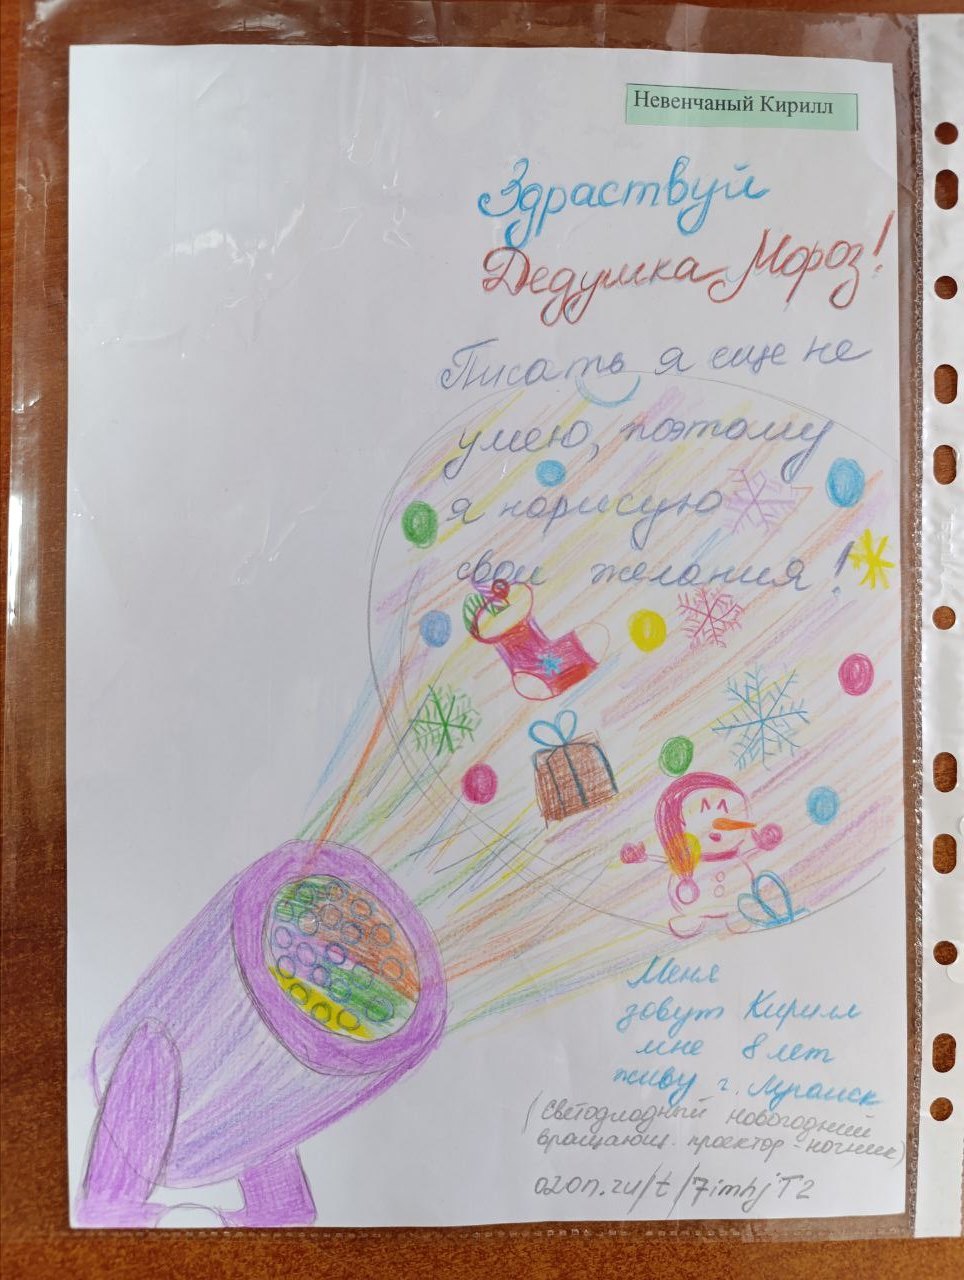 Невенчаный Кирилл
Здраствуй
Дедушка Мороз!
Писать я еще не
умею, поэтому
я нарисую
свои желания!
Меня
зовут Кирилл
мне 8 лет
живу г. Луганск
(Светодиодный новогодний
вращающ. проектор-ночник)
ozon.ru/t/7imhjT2